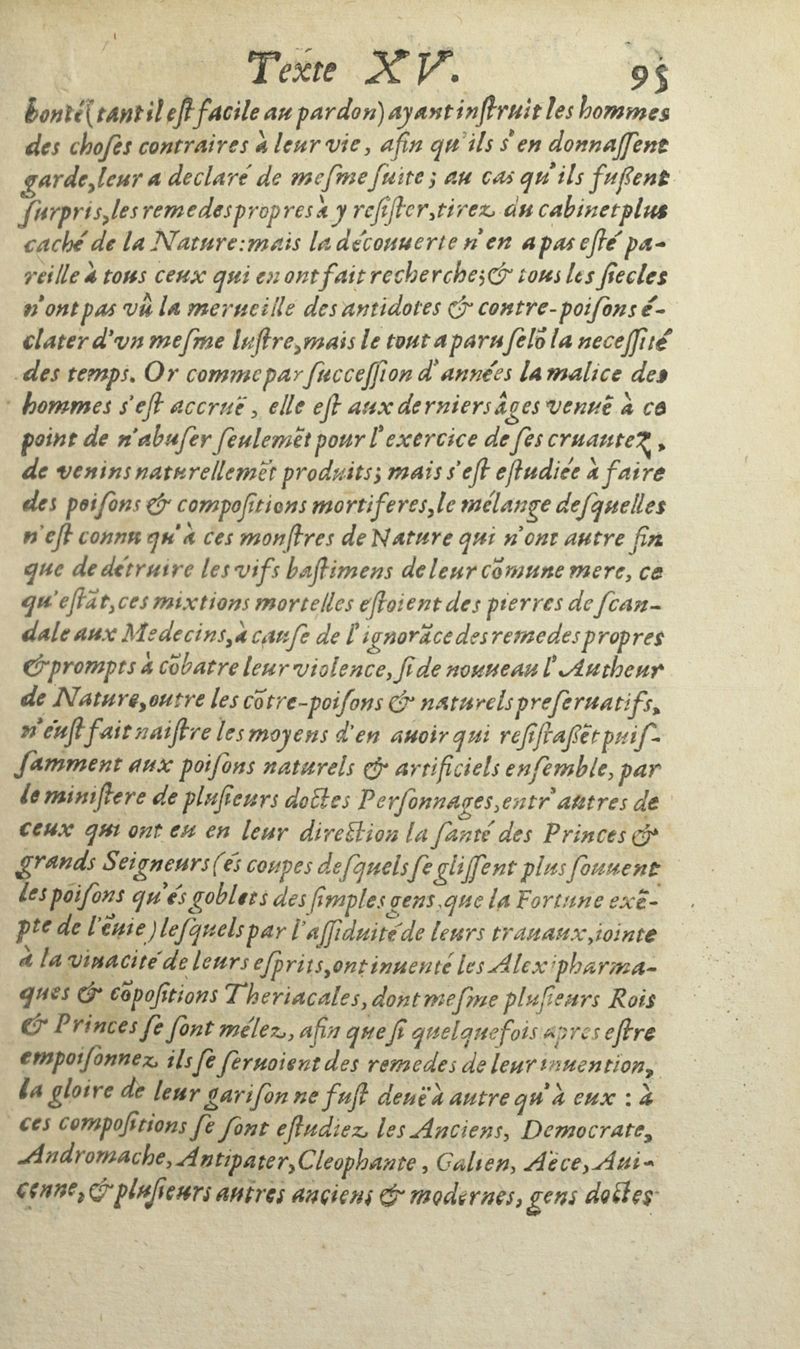 Texte XV. 95
bonté (tant il eſt facile au pardon) ayant inſtruit les hommes
des choſes contraires à leur vie, afin qu'ils s'en donnaſſent
garde, leur a declaré de meſme ſuite; au cas qu'ils fuſſent
ſurpris, les remedes propres à y reſiſter, tirez du cabinet plus
caché de la Nature: mais la découuerte n'en a pas eſté pa-
reille à tous ceux qui en ont fait recherche; & tous les ſiecles
n'ont pas vû la merueille des antidotes & contre-poiſons é-
clater d'vn meſme luſtre, mais le tout a paru ſelō la neceſſité
des temps. Or comme par ſucceſſion d'années la malice des
hommes s'eſt accruë, elle eſt aux derniers âges venuë à ce
point de n'abuſer ſeulemēt pour l'exercice de ſes cruautez,
de venins naturellemēt produits; mais s'eſt eſtudiée à faire
des poiſons & compoſitions mortiferes, le mélange deſquelles
n'eſt connu qu'à ces monſtres de Nature qui n'ont autre fin
que de détruire les vifs baſtimens de leur cōmune mere, ce
qu'eſtāt, ces mixtions mortelles eſtoient des pierres de ſcan-
dale aux Medecins, à cauſe de l'ignorāce des remedes propres
& prompts à cōbatre leur violence, ſi de nouueau l'Autheur
de Nature, outre les cōtre-poiſons & naturels preſeruatifs,
n'éuſt fait naiſtre les moyens d'en auoir qui reſiſtaſſēt puiſ-
ſamment aux poiſons naturels & artificiels enſemble, par
le miniſtere de pluſieurs doctes Perſonnages, entr'autres de
ceux qui ont eu en leur direction la ſanté des Princes &
grands Seigneurs (és coupes deſquels ſe gliſſent plus ſouuent
les poiſons qu'és goblets des ſimples gens, que la Fortune exē-
pte de l'ēuie) leſquels par l'aſſiduité de leurs trauaux, iointe
à la viuacité de leurs eſprits, ont inuenté les Alexipharma-
ques & cōpoſitions Theriacales, dont meſme pluſieurs Rois
& Princes ſe ſont mélez, afin que ſi quelquefois apres eſtre
empoiſonnez ils ſe ſeruoient des remedes de leur inuention,
la gloire de leur gariſon ne fuſt deuë à autre qu'à eux : à
ces compoſitions ſe ſont eſtudiez les Anciens, Democrate,
Andromache, Antipater, Cleophante, Galien, Aëce, Aui-
cenne, & pluſieurs autres anciens & modernes, gens doctes